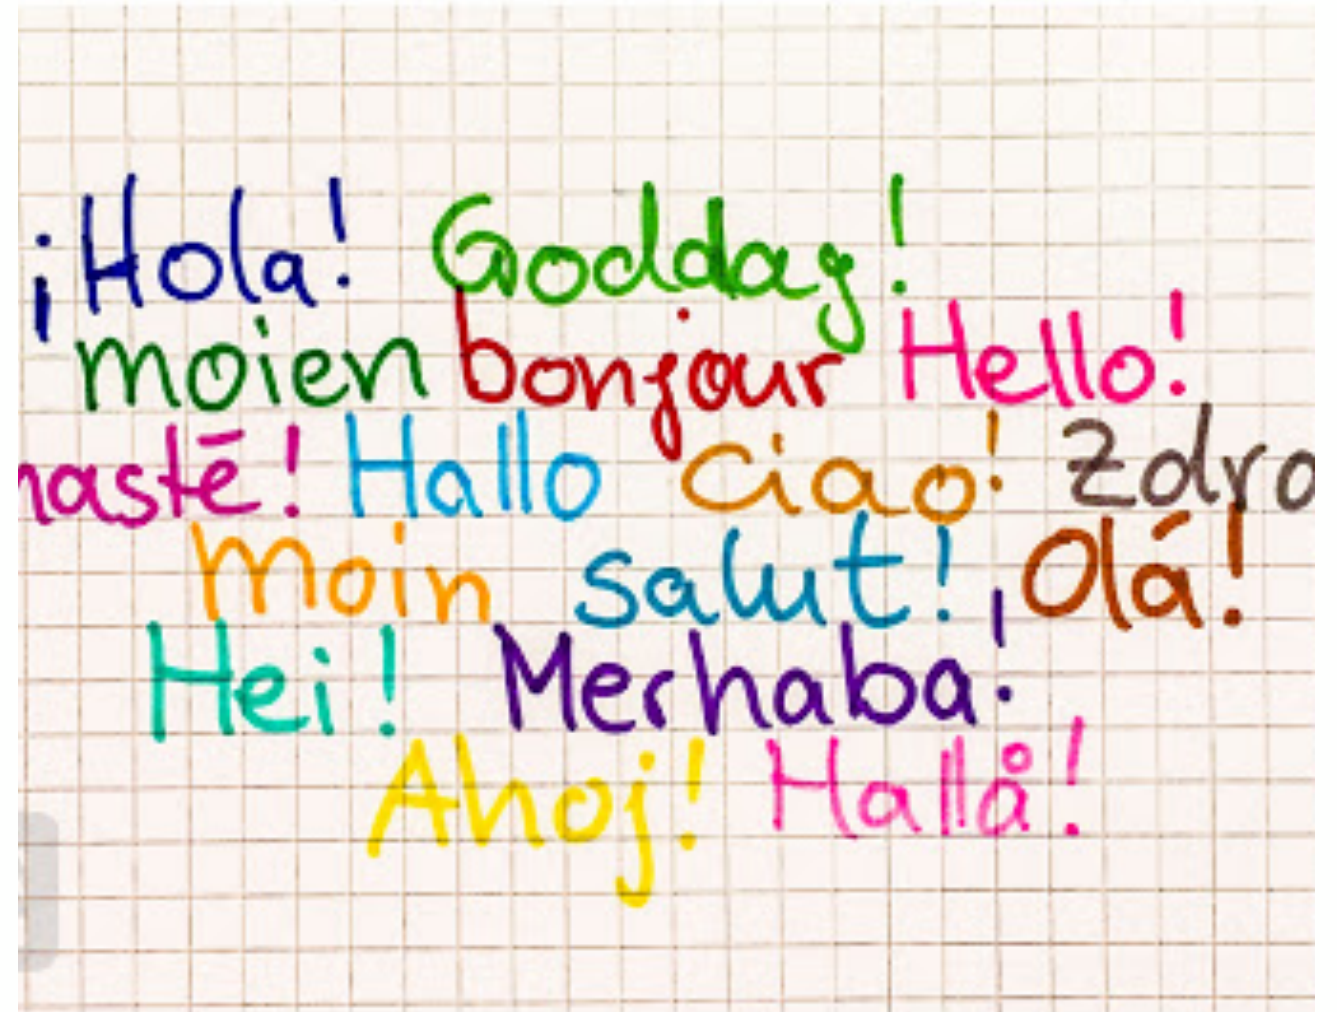 ¡Hola! Goddag!
moien bonjour Hello!
nasté! Hallo ciao! Zdro
moin salut! Olá!
Hei! Merhaba!
Ahoj! Hallå!